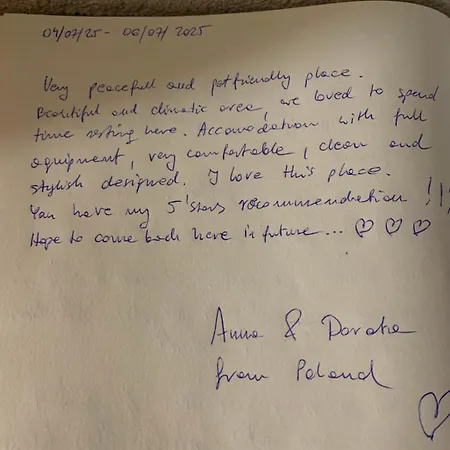 04/07/25 - 06/07/2025
Very peacefull and petfriendly place.
Beautiful and climatic area, we loved to spend
time resting here. Accomodation with full
equipment, very comfortable, clean and
stylish designed. I love this place.
You have my 5'stars recommendation !!!
Hope to come back here in future... ♡ ♡ ♡
Anna & Dorota
from Poland